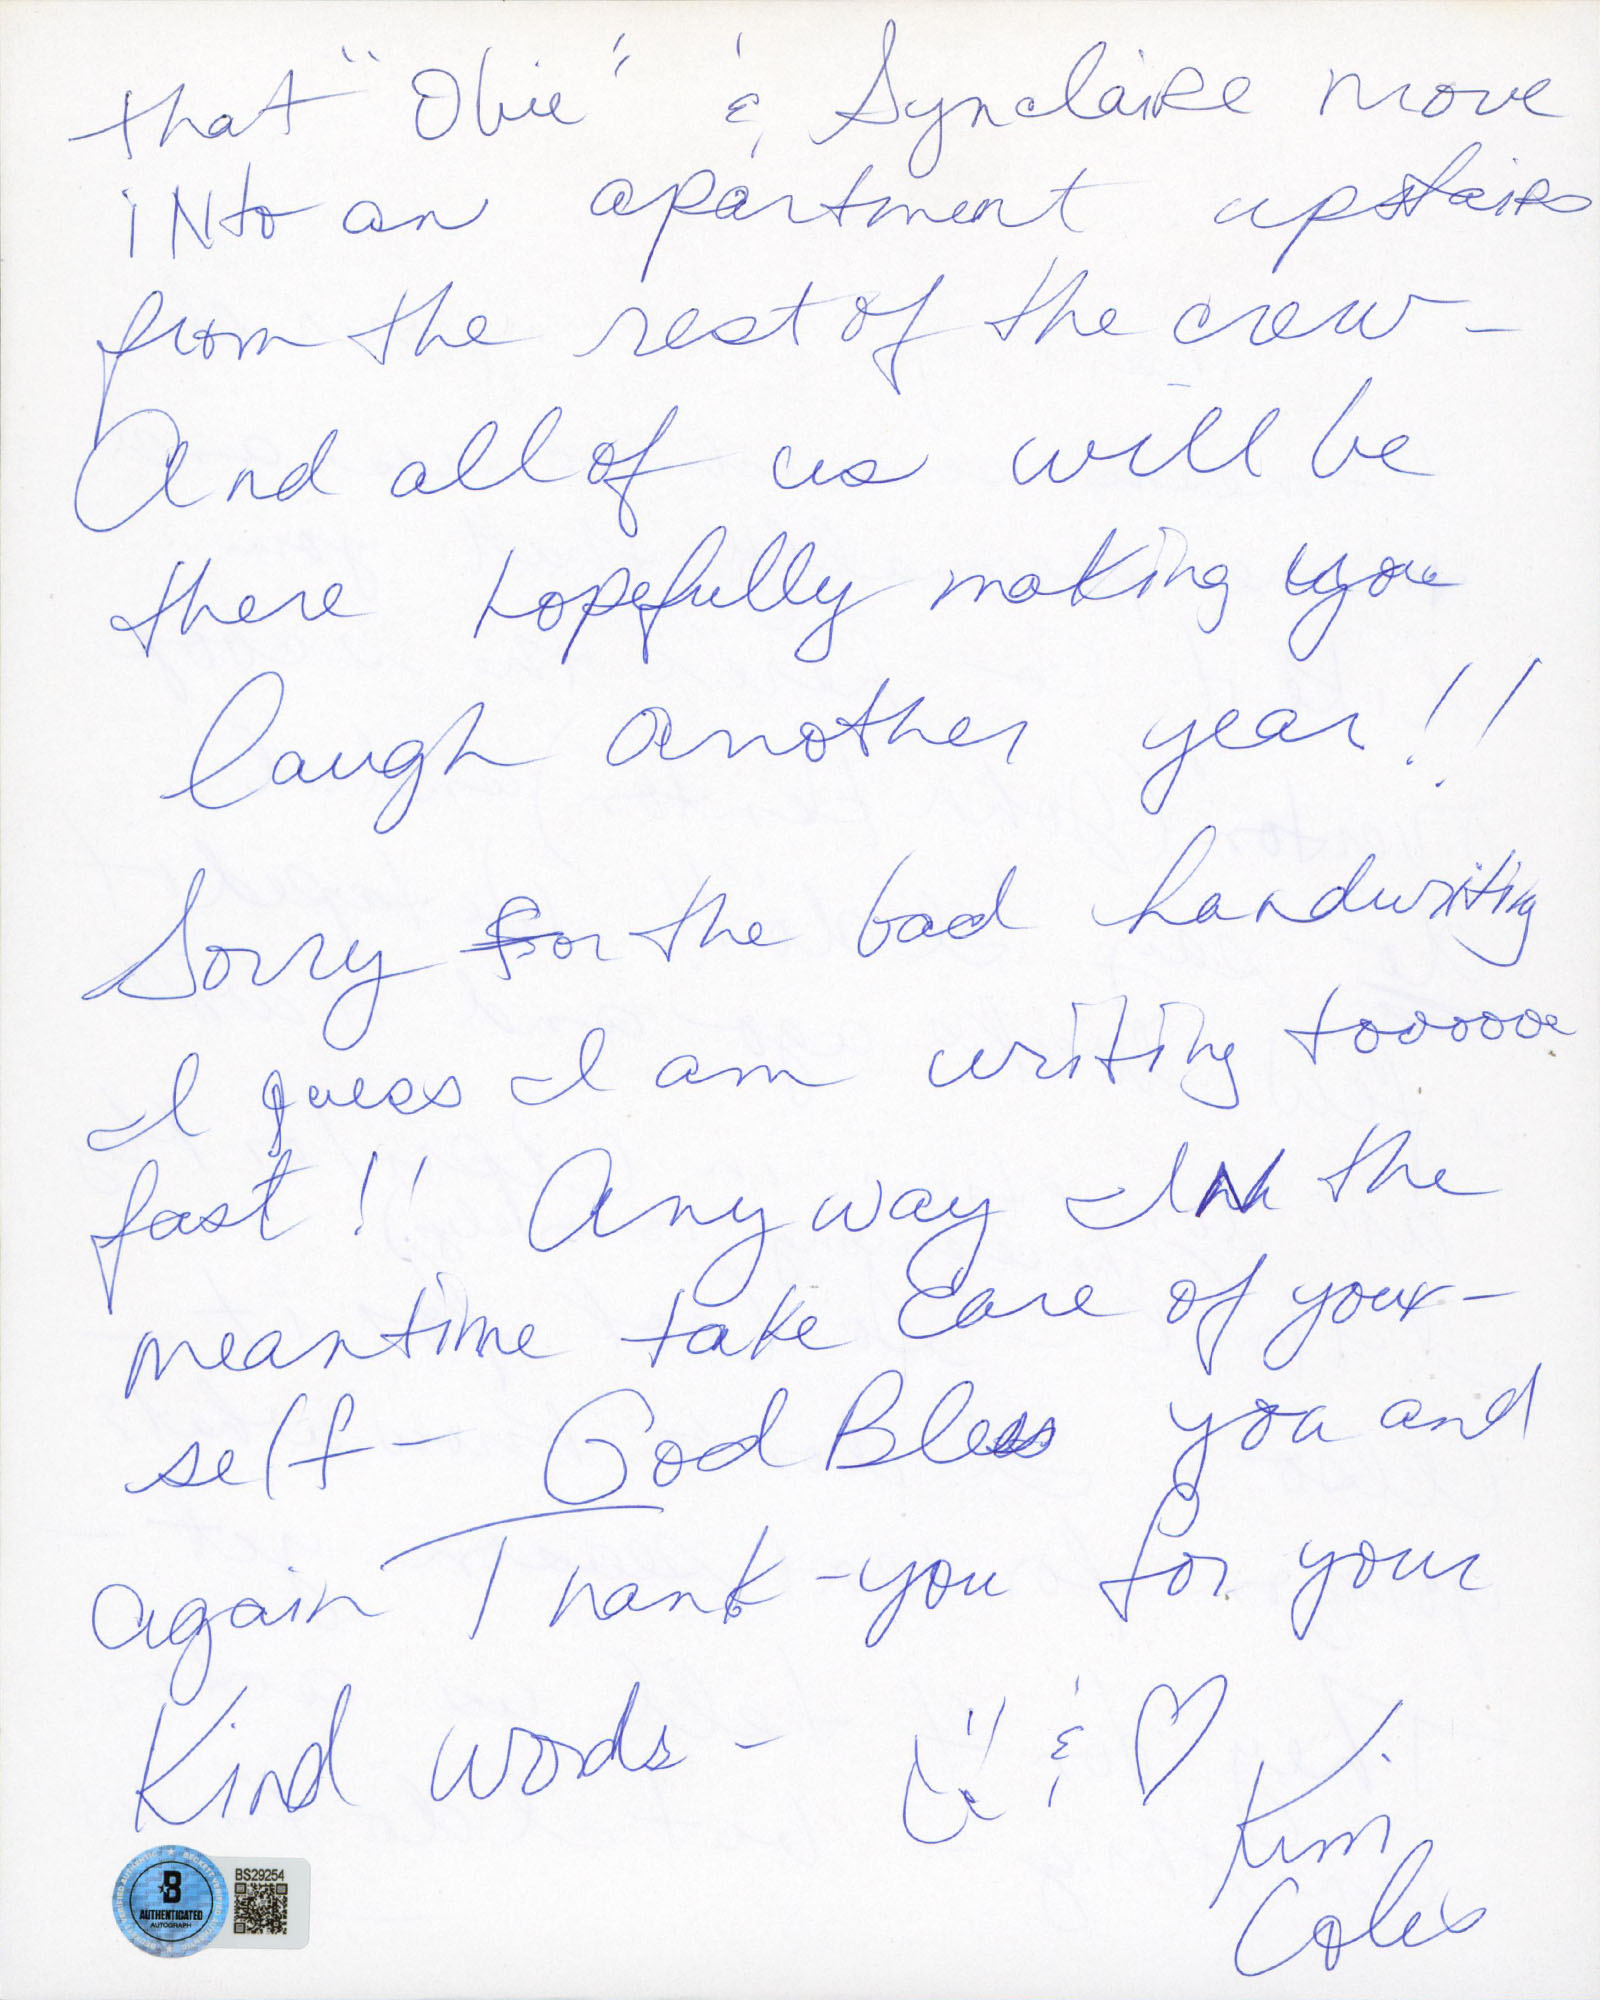 that "Obie" & Synclaire move
INto an apartment upstairs
from the rest of the crew -
And all of us will be
there hopefully making you
laugh another year!!
Sorry for the bad handwriting
I guess I am writing toooooo
fast!! Anyway - In the
meantime take care of your-
self - God Bless you and
again Thank-you for your
Kind words - & ♡
Kim
Coles
B
AUTHENTICATED
AUTOGRAPH
BS29254